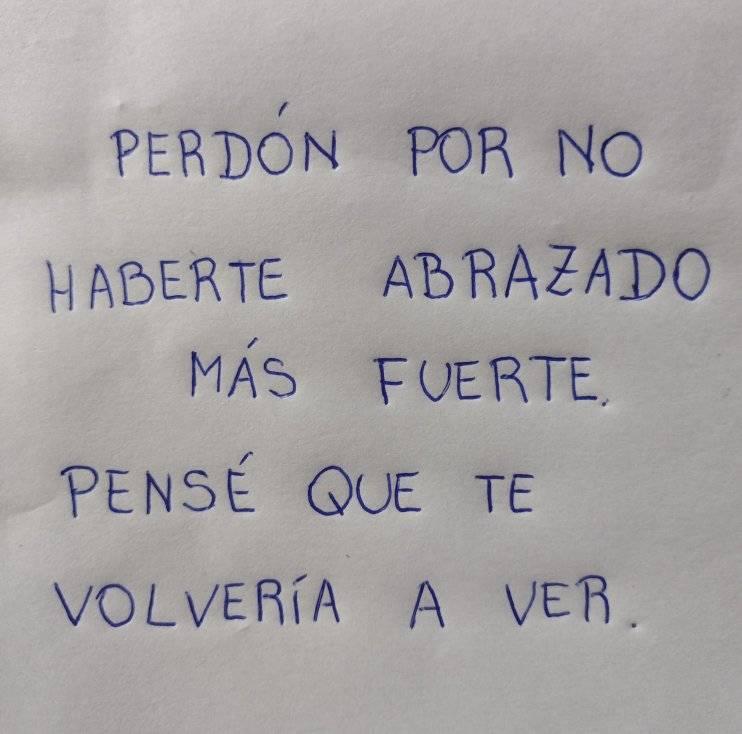 PERDÓN POR NO
HABERTE ABRAZADO
MÁS FUERTE.
PENSÉ QUE TE
VOLVERÍA A VER.